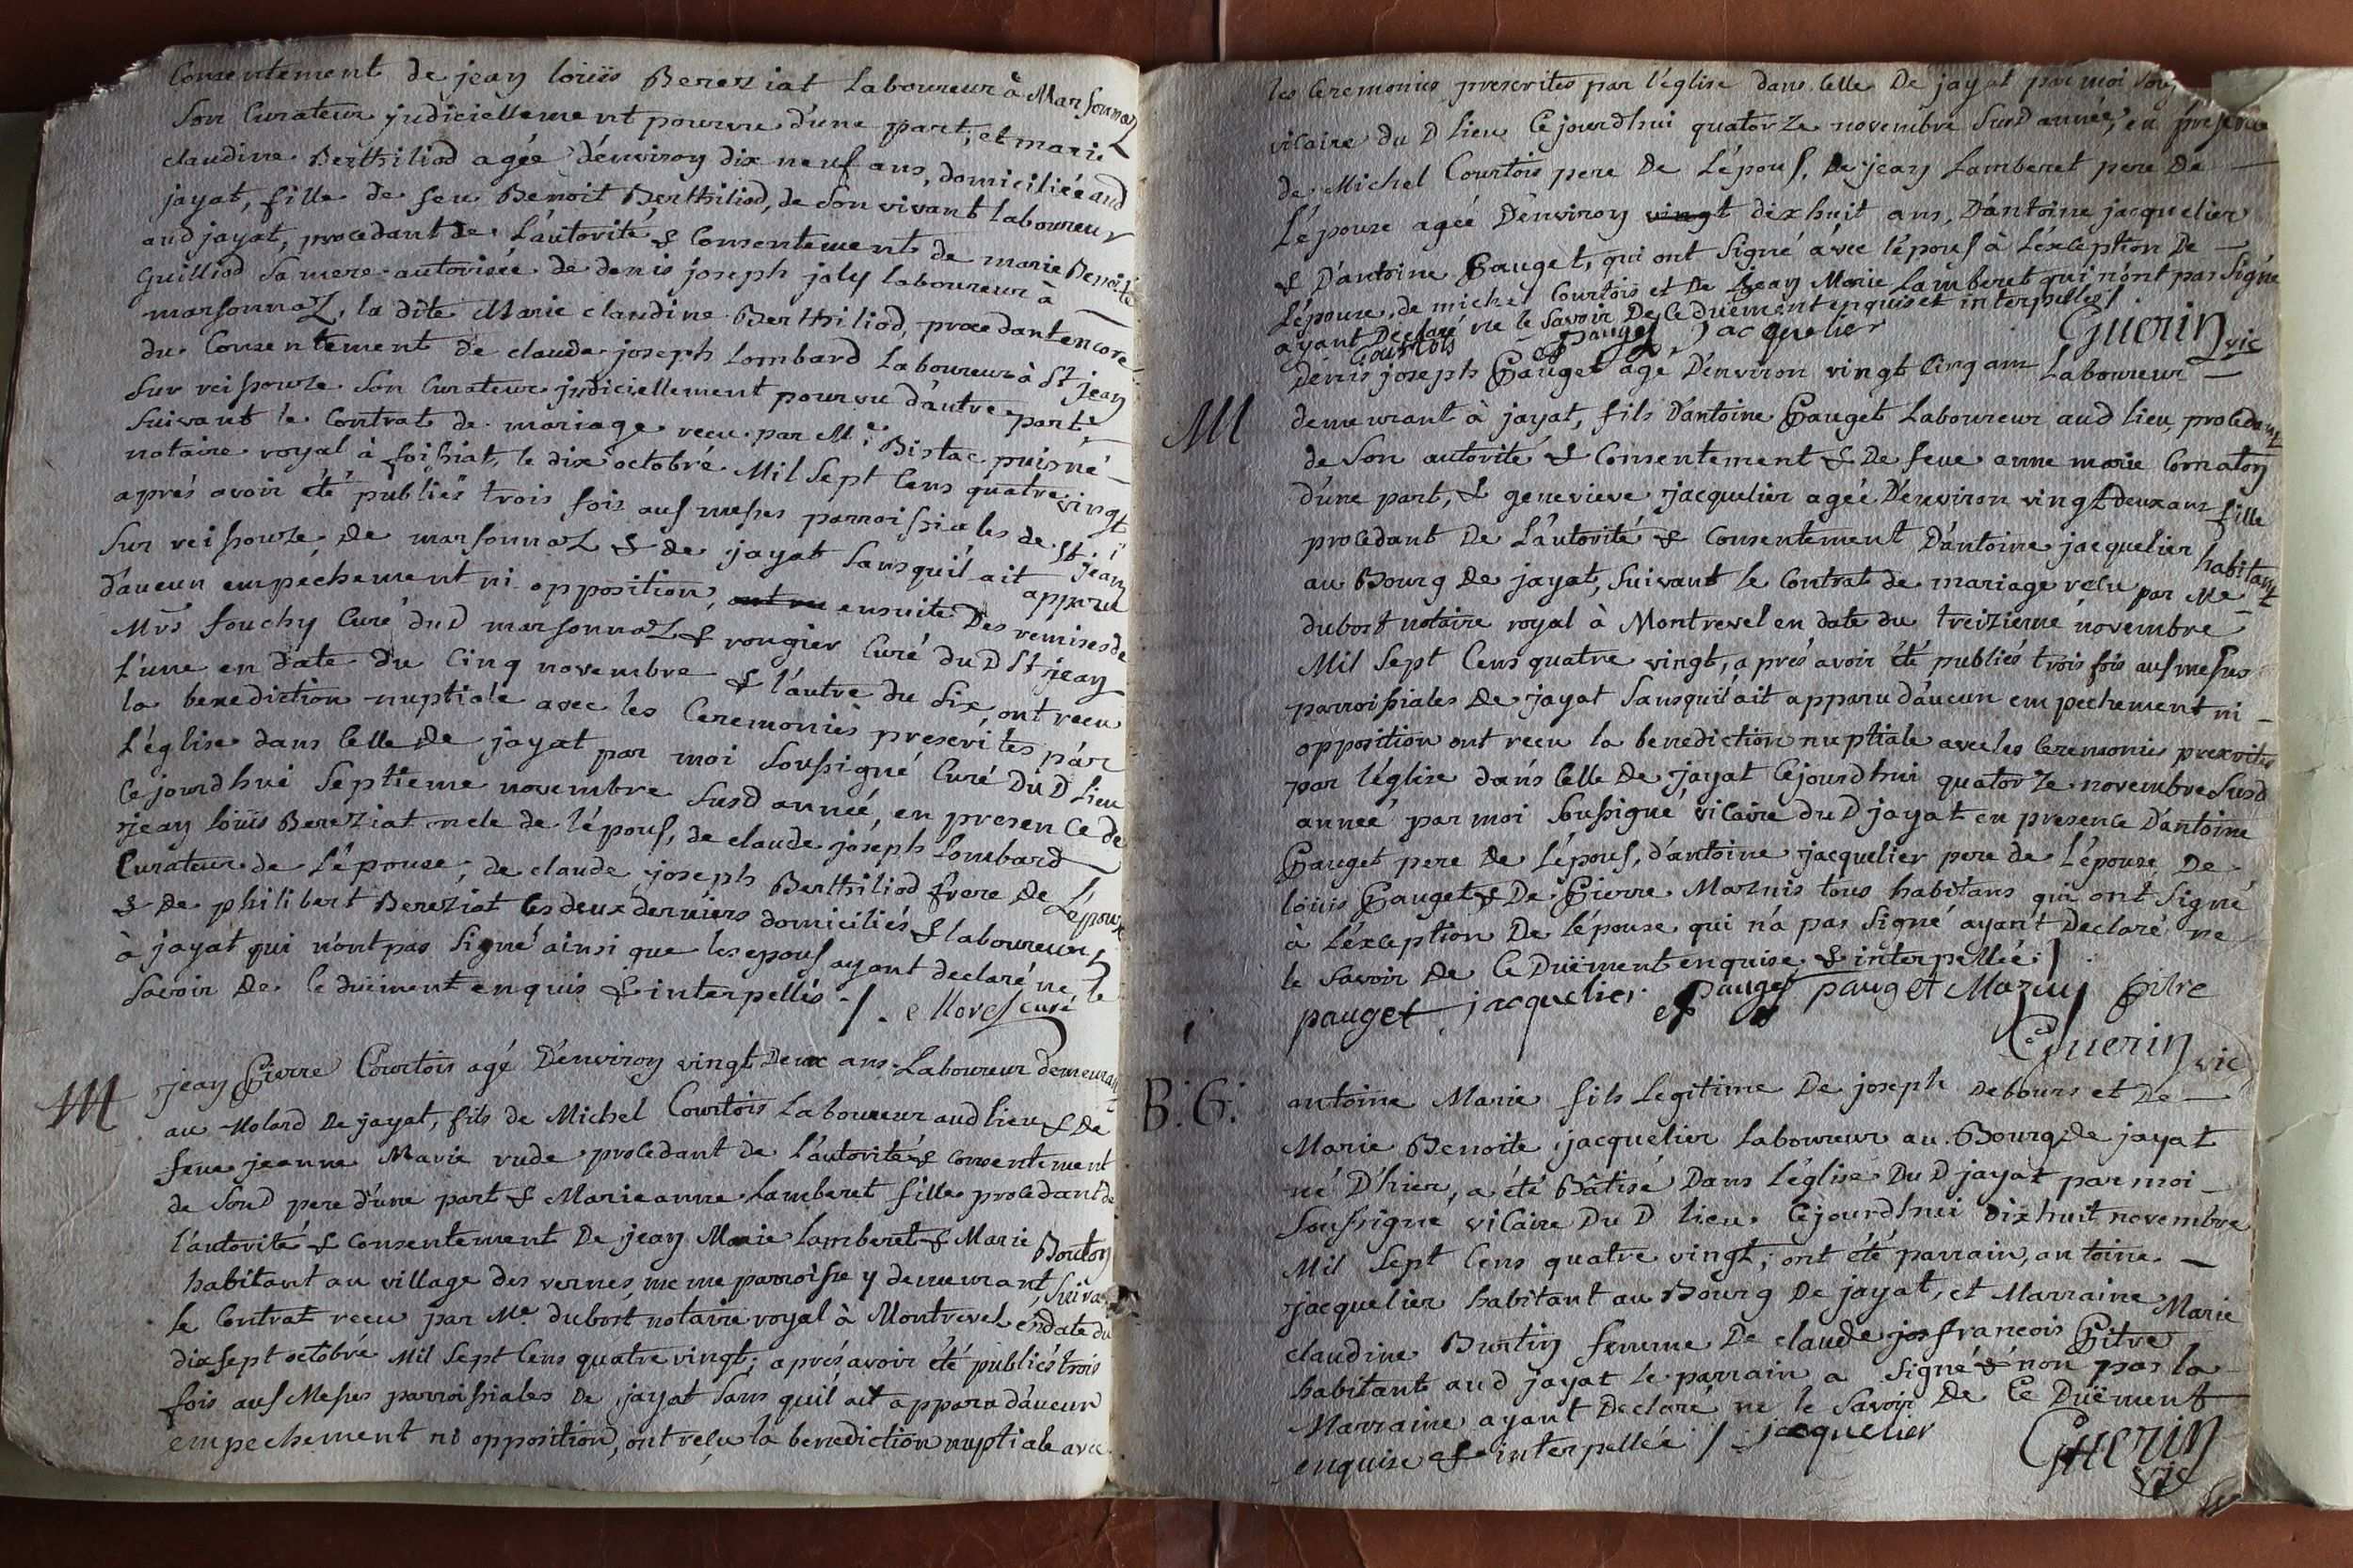 Consentement de jean loüis Bereziat Laboureur à Marsonnaz
Son Curateur judiciellement pourvu d'une part, et marie
claudine Berthiliod agée d'environ dix neuf ans, domiciliée aud
jayat, fille de feu Benoit Berthiliod, de Son vivant laboureur
aud jayat, procedant de L'autorité & Consentement de marie Benoite
Guilliod Sa mere autorisée de denis joseph joly laboureur à
marsonnaz, la dite Marie claudine Berthiliod, procedant encore
du Consentement de claude joseph Lombard Laboureur à St jean
Sur reissouze Son Curateur judiciellement pourvu d'autre part
Suivant le Contrat de mariage recu par Me. Bistac puisné
notaire royal à foissiat, le dix octobre Mil Sept Cens quatre vingt
aprés avoir été publiés trois fois aus messes parroissiales de St jean
Sur reissouze, de marsonnaz & de jayat Sansquil ait apparu
d'aucun empechement ni opposition, ensuite Des remises de
Mrs fouchy Curé du D marsonnaz & rougier Curé du D St jean
L'une en date du Cinq novembre & l'autre du Six, ont recu
la benediction nuptiale avec les Ceremonies prescrites par
L'église dans Celle De jayat par moi Soussigné Curé Du D Lieu
Cejourdhui Septieme novembre Susd année, en presence de
jean loüis Bereziat oncle de l'épous, de claude joseph Lombard
Curateur de L'épouse, de claude joseph Berthiliod frere de L'épouse
& De philibert Bereziat les deux derniers domiciliés & laboureurs
à jayat qui n'ont pas Signé ainsi que les epous ayant declaré ne le
Savoir De Ce düement enquis & interpellés ./. Curé
M
jean Pierre Courtois agé D'environ vingt Deux ans Laboureur demeurant
au Molard De jayat, fils de Michel Courtois Laboureur aud lieu & De
feue jeanne Marie rude procedant de L'autorité & consentement
de SonD pere d'une part & Marieanne Lamberet fille procedant de
l'autorité & Consentement De jean Marie Lamberet & Marie Bouton
habitant au village des vernes, meme parroisse y demeurant, Suivant
le Contrat recu par Me. dubost notaire royal à Montrevel en date du
dixsept octobre Mil Sept Cens quatre vingt; aprés avoir été publiés trois
fois aus Messes parroissiales De jayat Sans quil ait apparu d'aucun
empechement ni opposition, ont reçu la benediction nuptiale avec
les Ceremonies prescrites par l'église dans Celle De jayat par moi
vicaire du D Lieu Cejourdhui quatorze novembre SusD année, en présence
de Michel Courtois pere De L'épous, De jean Lamberet pere De
L'épouse agée D'environ vingt dixhuit ans, D'antoine jacquelier
& D'antoine Pauget, qui ont Signé avec l'épous à L'exception De
L'épouse, de michel Courtois et De jean Marie Lamberet qui n'ont pas Signé
ayant Declaré ne le Savoir De Ce düement enquis et interpellés /.
Courtois Pauget Jacquelier Guerin vic
M
Denis joseph Pauget agé D'environ vingt Cinq ans Laboureur
demeurant à jayat, fils D'antoine Pauget Laboureur aud lieu, procedant
de Son autorité & Consentement & De feue anne marie Cornaton
d'une part, & genevieve jacquelier agée D'environ vingt Deux ans fille
procedant De L'autorité & Consentement D'antoine jacquelier habitant
au Bourg De jayat, Suivant le Contrat de mariage reçu par Me
dubost notaire royal à Montrevel en date du treizieme novembre
Mil Sept Cens quatre vingt, aprés avoir été publiés trois fois aus messes
parroissiales De jayat Sansquil ait apparu d'aucun empechement ni
opposition ont recu la benediction nuptiale avec les Ceremonies prescrites
par l'église dans Celle De jayat Cejourdhui quatorze novembre Susd
année par moi Soussigné vicaire du D jayat en presence D'antoine
Pauget pere De l'épous, d'antoine jacquelier pere de L'épouse, De
loüis Pauget & De Pierre Maznis tous habitans qui ont Signé
à L'exception De l'épouse qui n'a pas Signé ayant Declaré ne
le Savoir De Ce Düement enquise & interpellée /.
pauget jacquelier Pauget pauget Maznis Pitre
Guerin vic
B. G.
antoine Marie fils Legitime De joseph Debours et De
Marie Benoite jacquelier Laboureur au Bourg De jayat
né D'hier, a été Bâtisé Dans L'église Du D jayat par moi
Soussigné vicaire Du D lieu. Cejourdhui dixhuit novembre
Mil Sept Cens quatre vingt; ont été parrain, antoine
jacquelier habitant au Bourg De jayat, et Marraine Marie
claudine Burtin femme De claude francois Pitre
habitant aud jayat le parrain a Signé & non pas la
Marraine ayant Declaré ne le Savoir De Ce Düement
enquise & interpellée / jacquelier
Guerin
vic